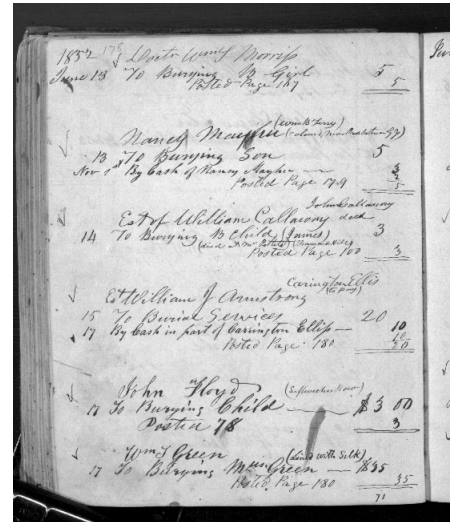 1852 178 Doctr Wm S Morriss
June 13 To Burying B Girl 5
Posted Page 167 5
Nancy Mayhu
13 To Burying Son 5
Nov 1st By Cash of Nancy Mayhu 3
Posted Page 179 5
John Callaway
Est of William Callaway decd
14 To Burying B Child (James) 3
Posted Page 100 3
Carington Ellis
(to pay)
Est William J Armstrong
15 To Burial Services 20
17 By Cash in part of Carington Ellis — 10
Posted Page 180 20
John Floyd
17 To Burying Child — $3 00
Posted 78 3
Wm S Green (lined with Silk)
17 To Burying Mrs Green — $35
Posted Page 180 35
71